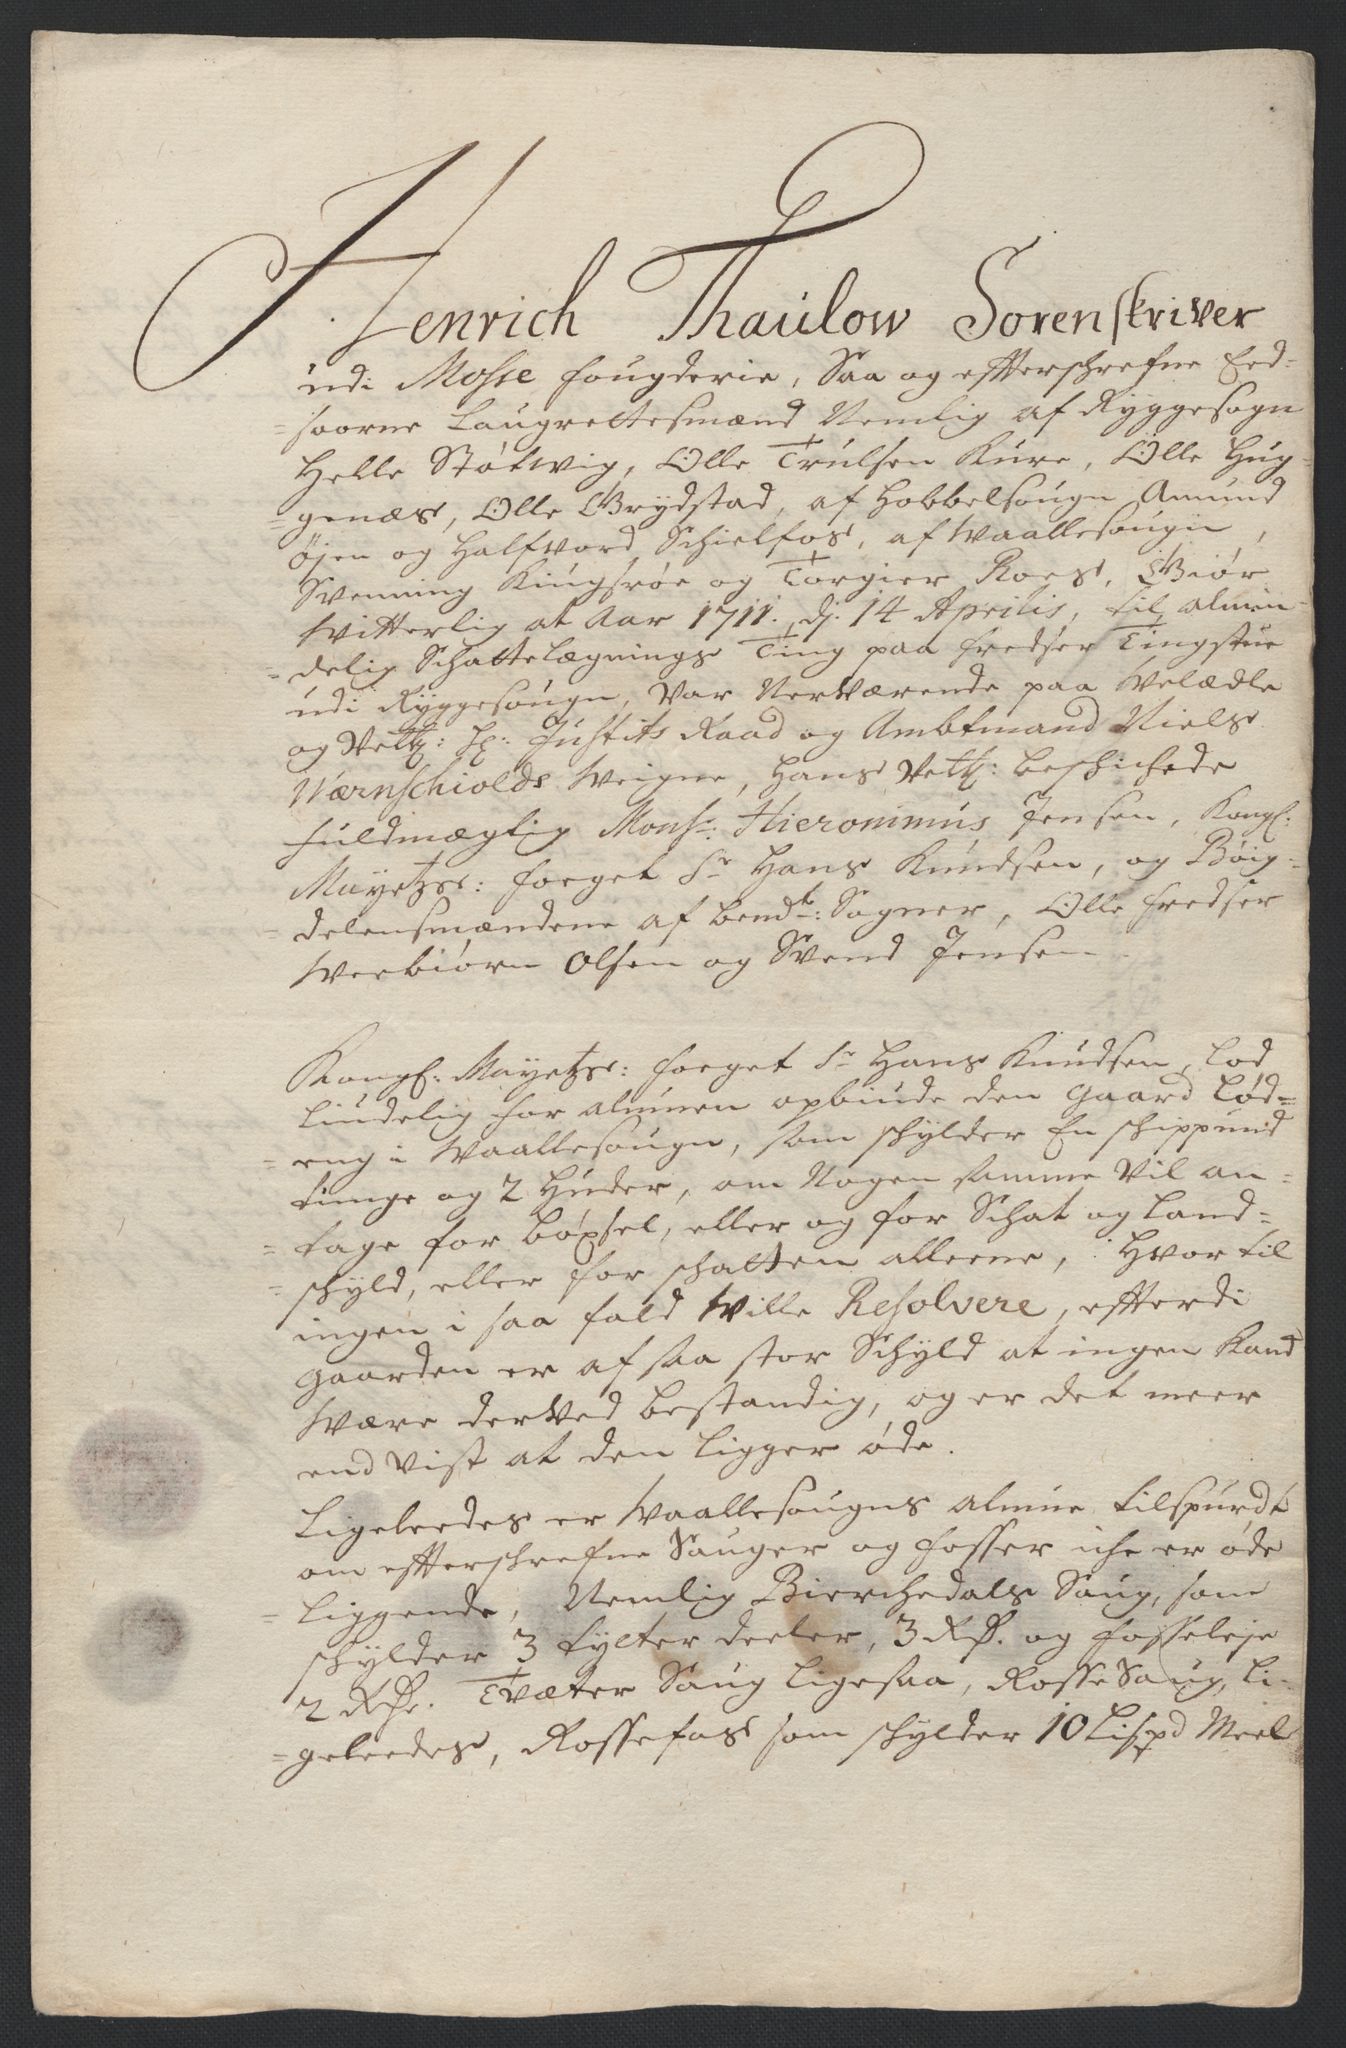 Henrich Thaulow Sorenskriver
udi Mosse fougderie, Saa og effterschrefne Eed-
=soorne Laugrettesmænd Nemlig af Ryggesogn
Helle Støtwig, Olle Trulsen Kure, Olle Hug-
=genæs, Olle Grydstad, af Hobbelsougn Amund
Øjen og Halfvord Schielfos, af Waallesougn,
Svenning Kiugsrøe og Torgier Roes, Giør
witterlig at Aar 1711. dj. 14 Aprilis, til almin-
=delig Schattelægnings Ting paa Fredser Tingstue
udi Ryggesougn, var Nerværende paa Velædle
og Velb: Hr: Justits Raad og Ambtmand Niels
Wærnschiolds Veigne, Hans Velb: beschichede
fuldmægtig Monsr: Hieronimus Jensen, Kongl:
Mayetzs: foeget Sr Hans Knudsen, og Bøig-
=delensmændene af bemdte: Sogner, Olle Fredser
Werbiørn Olsen og Svend Jensen
Kongl: Mayetzs: foeget Sr Hans Knudsen, lod
liudelig for almuen opbiude den gaard Lød=
=eng i Waallesougn, som schylder En schippund
tunge og 2 Huder, om Nogen samme vil an-
=tage for bøxsel, eller og for Schat og Land=
=schyld, eller for schatten alleene, Hvor til
ingen i saa fald wille Resolvere, efferdi
gaarden er af saa stor Schyld at ingen Kand
være derved bestandig, og er det meer
end vist at den ligger øde.
Ligeleedes er Waallesougns almue tilspurdt
om effterschrefne Sauger og fosser iche er øde
=liggende, Nemlig Bierchedals Saug, som
schylder 3 tylter deeler, 3 Rdr. og fosseleje
2 Rdr. Tvæter Saug ligesaa, Rosse Saug, li-
=geleedes, Rossefos som schylder 10 Lispd Meel